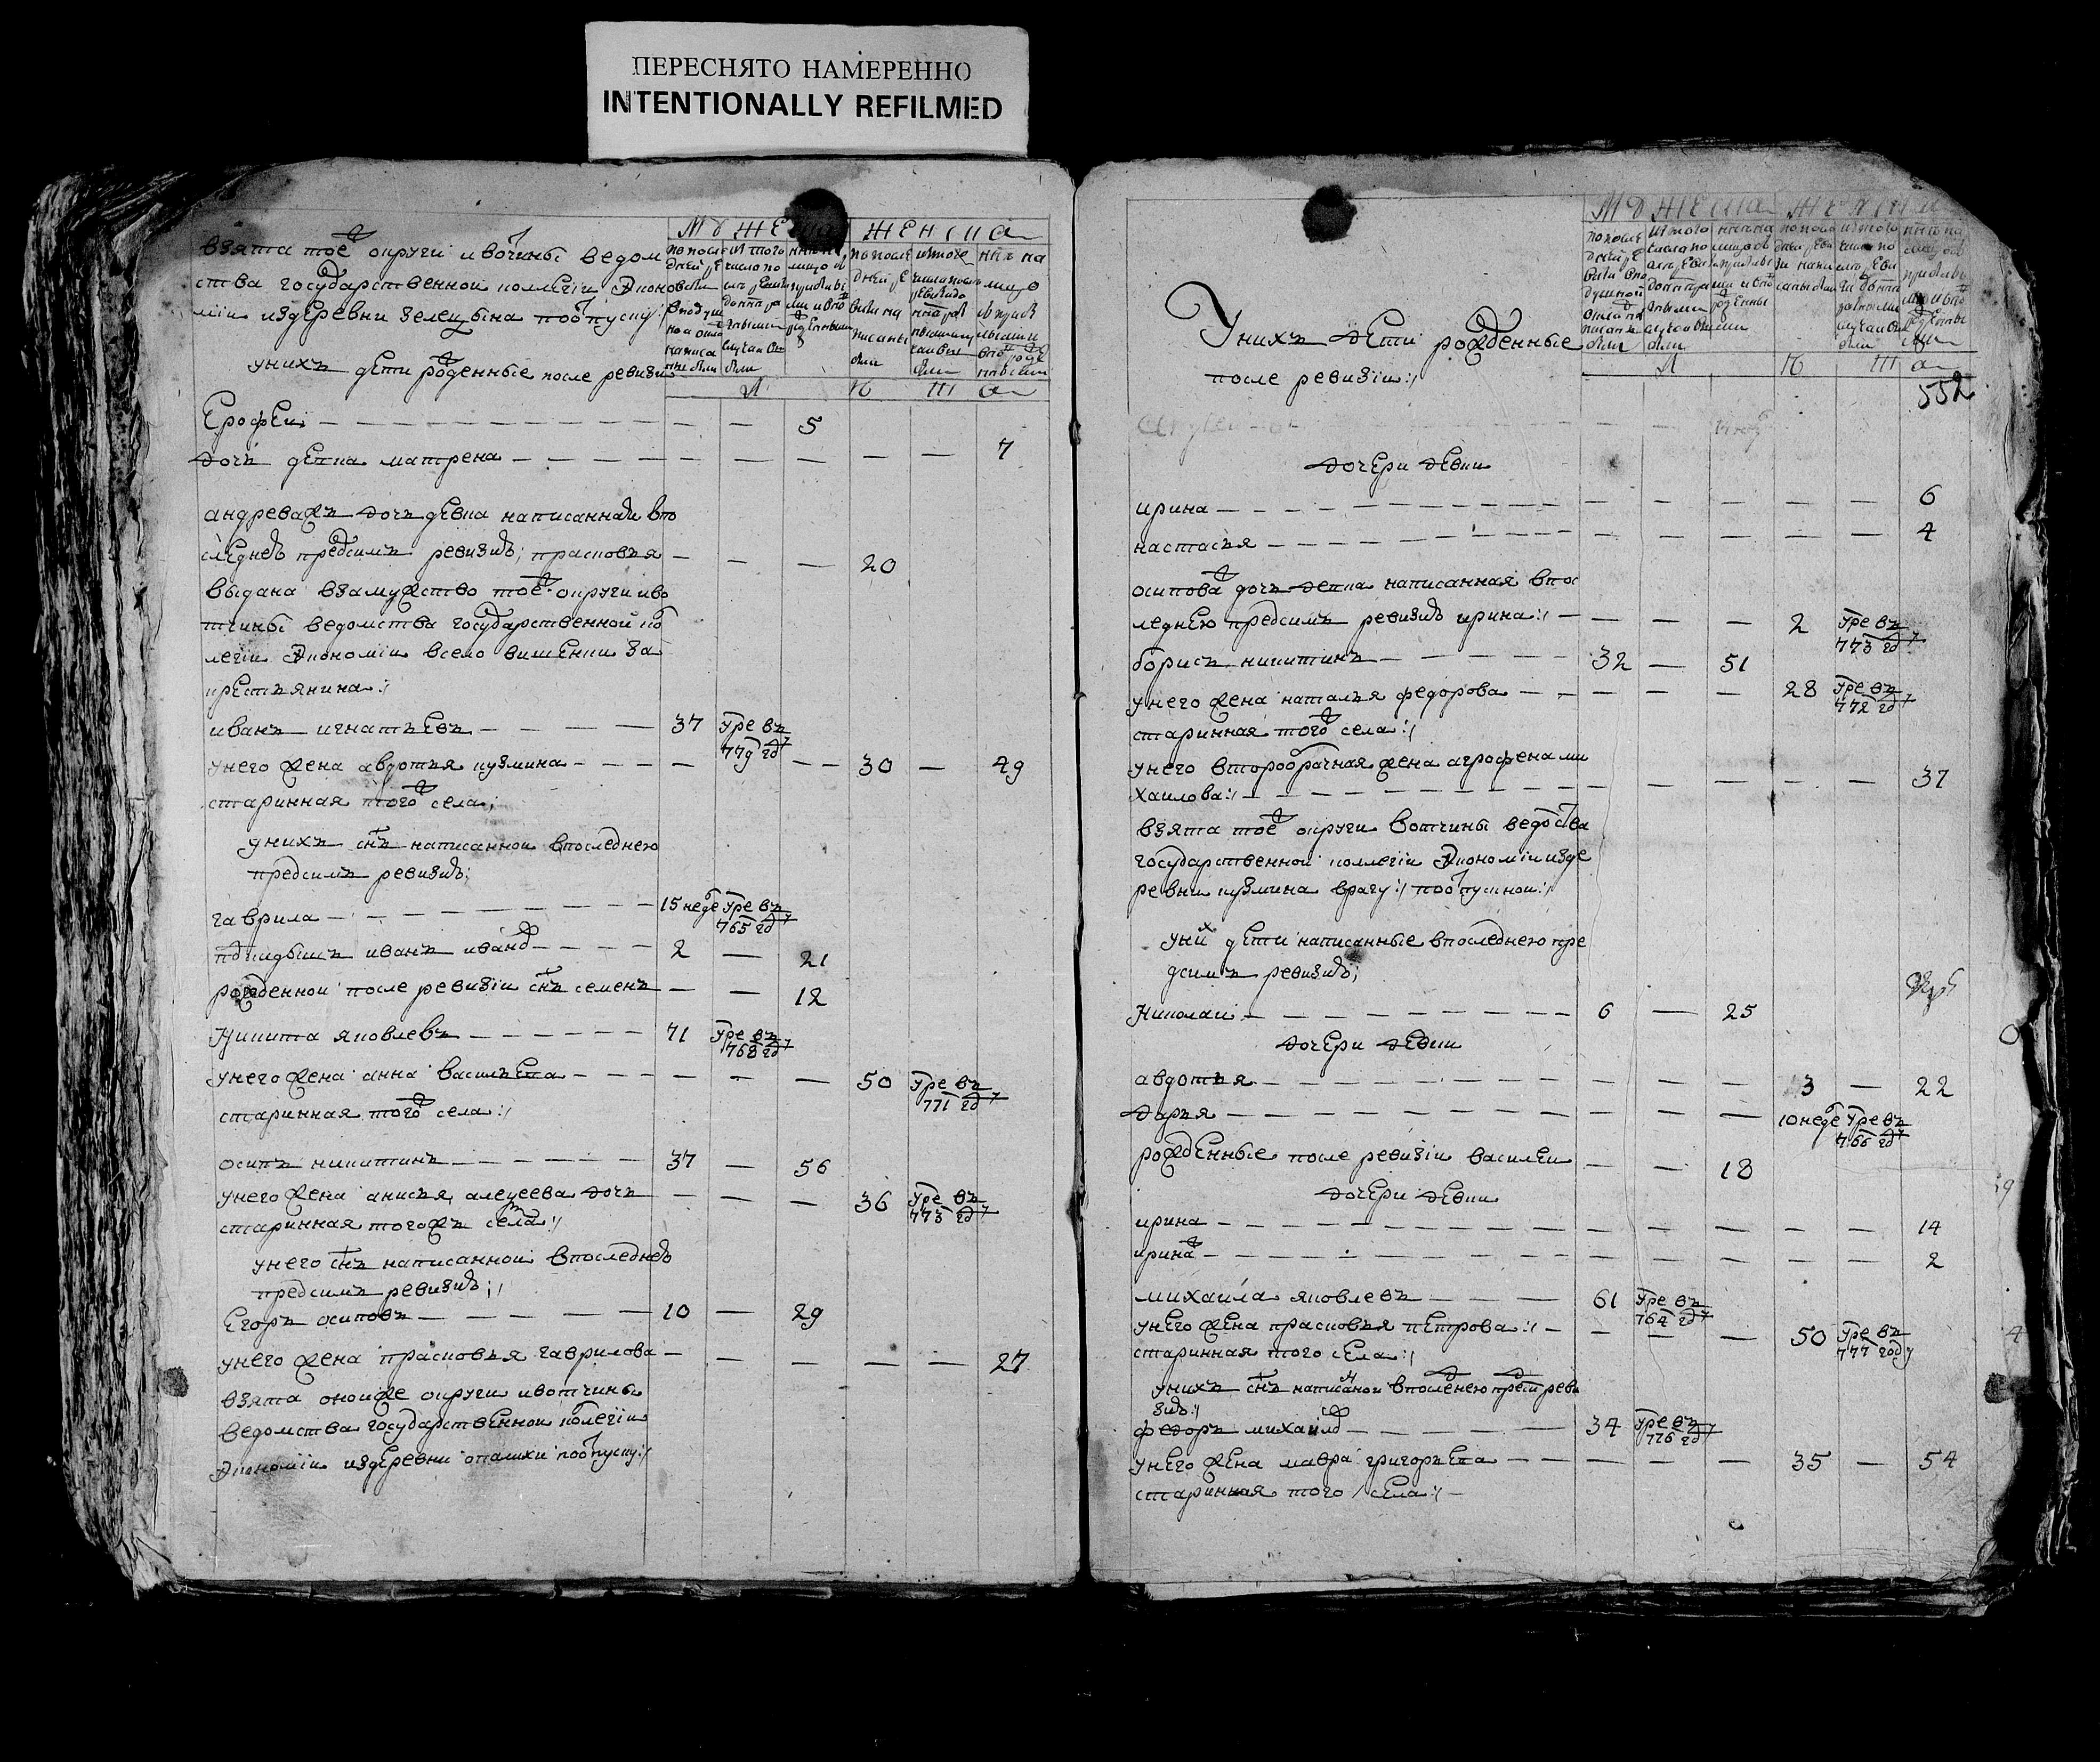 ПЕРЕСНЯТО НАМЕРЕННО
INTENTIONALLY REFILMED
взята тоеж округи и вотчины ведом
ства государственной коллегии Эконо
мии из деревни по отпуску:/
у них дети рожденные после ревизии
Ерофеи — 5
дочь девка матрена — 7
андреева ж дочь девка написанная в по
следней пред сим ревизиѣ; прасковья — 20
выдана в замужство тоеж округи и во
тчины ведомства государственной ко
легии Экономии в село вишенки за
крестьянина:/
иванъ игнатьевъ — 37 умре въ 779 году
у него жена авдотья кузмина — 30 — 49
старинная того ж села;
у нихъ снъ написанной в последнею
пред симъ ревизиѣ;
гаврила — 15 недѣ умре въ 765 году
подкидышъ иванъ ивановъ — 2 — 21
рожденной после ревизии снъ семенъ — 12
Никита яковлевъ — 71 умре въ 768 году
у него жена анна васильева — 50 умре въ 771 году
старинная того ж села:/
осипъ никитинъ — 37 — 56
у него жена анисья алексеева дочь — 36 умре въ 773 году
старинная того жъ села:/
у него снъ написанной в последнеѣ
пред симъ ревизиѣ:/
Егоръ осиповъ — 10 — 29
у него жена прасковья гаврилова — 27
взята оной же округи и вотчины
ведомства государственной колегии
Экономии из деревни опалихи по отпуску:/
МУЖЕСКА ЖЕНСКА
552
У нихъ дети рожденные
после ревизии:/
дочери девки
ирина — 6
настасья — 4
осипова ж дочь девка написанная в пос
леднею пред симъ ревизиѣ ирина:/ — 2 умре въ 773 году
борисъ никитинъ — 32 — 51
у него жена наталья федорова — 28 умре въ 772 году
старинная того ж села:/
у него второбрачная жена агрофена ми
хаилова:/ — 37
взята тоеж округи вотчины ведомства
государственной коллегии Экономии из де
ревни кузмина врагу:/ по отпускной:/
у них дети написанные в последнею пре
д симъ ревизиѣ;
Николаи — 6 — 25
дочери девки
авдотья — 3 — 22
дарья — 10 недѣ умре въ 766 году
рожденные после ревизии василеи — 18
дочери девки
ирина — 14
ирина ж — 2
михаила яковлевъ — 61 умре въ 764 году
у него жена прасковья петрова:/ — 50 умре въ 777 году
старинная того села:/
у нихъ снъ написанной в последнею пред сим реви
зиѣ:/
федоръ михаиловъ — 34 умре въ 776 году
у него жена мавра григорьева — 35 — 54
старинная того села:/